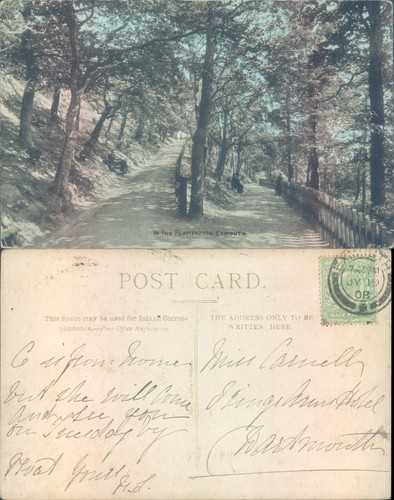 IN THE PLANTATION, EXMOUTH
POST CARD.
This Space may be used for Inland Corres-
pondence.—Post Office Regulation.
THE ADDRESS ONLY TO BE
WRITTEN HERE
JY 19
08
C is from home
but she will come
and see you
on Tuesday by
Boat yours
H.S.
Miss Carnell
Kings Arms Hotel
Dartmouth